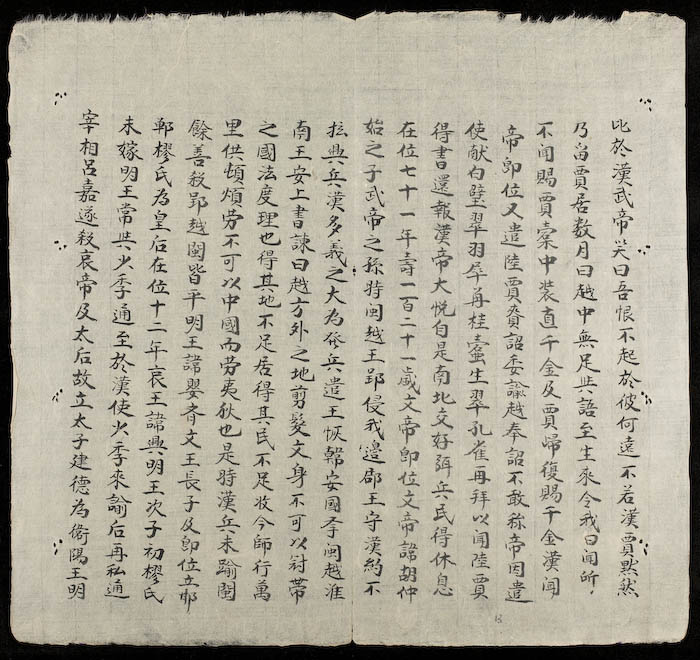 比於漢武帝笑曰吾恨不起於彼何遠不若漢賈黙然
乃畄賈居数月曰越中無足與語至生來令我日聞所〻
不聞賜賈槖中装直千金及賈㱕復賜千金漢聞
帝即位又遣陸賈賫詔委諭越奉詔不敢称帝因遣
使献白壁翠羽犀再桂蠧生翠孔雀再拜以聞陸賈
得書還報漢帝大悦自是南北交好弭兵民得休息
在位七十一年壽一百二十一歲文帝即位文帝諱胡仲
始之子武帝之孫時閩越王郢侵我邉郡王守漢約不
㧤興兵漢多義之大為發兵遣王恢韓安國李閩越淮
南王安上書諫曰越方外之地剪髪文身不可以冠帯
之國法度理也得其地不足居得其民不足收今師行萬
里供頓煩劳不可以中國而劳夷狄也是時漢兵未踰閩
餘善殺郢越閩皆平明王諱嬰齊文王長子及即位立邯
鄲樛氏為皇后在位十二年哀王諱興明王次子初樛氏
未嫁明王常與少季通至於漢使少季來諭后再私通
宰相呂嘉遂殺哀帝及太后故立太子建德為術陽王明